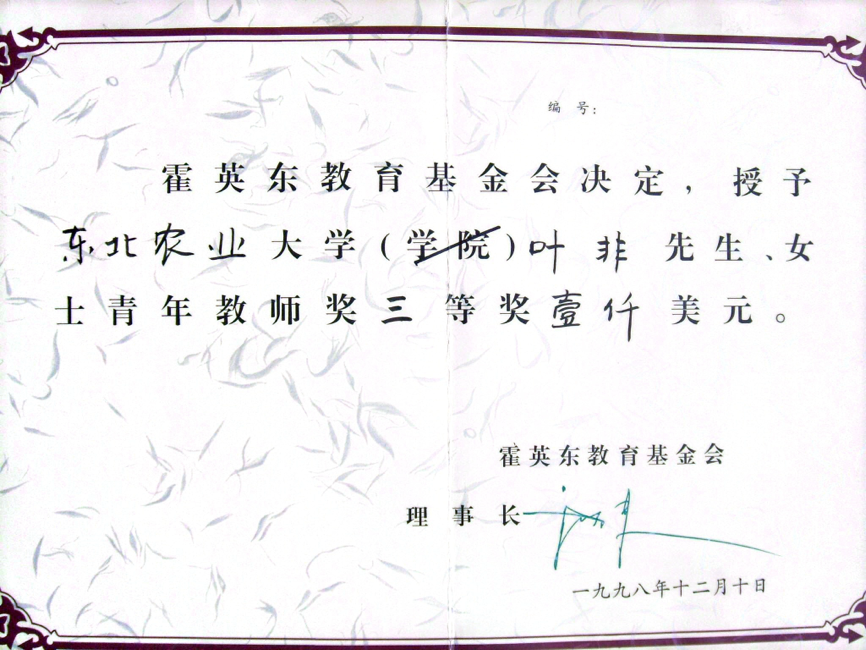 编 号：
霍英东教育基金会决定，授予
东北农业大学（学院）叶非先生、女
士青年教师奖三等奖壹仟美元。
霍英东教育基金会
理 事 长
一九九八年十二月十日